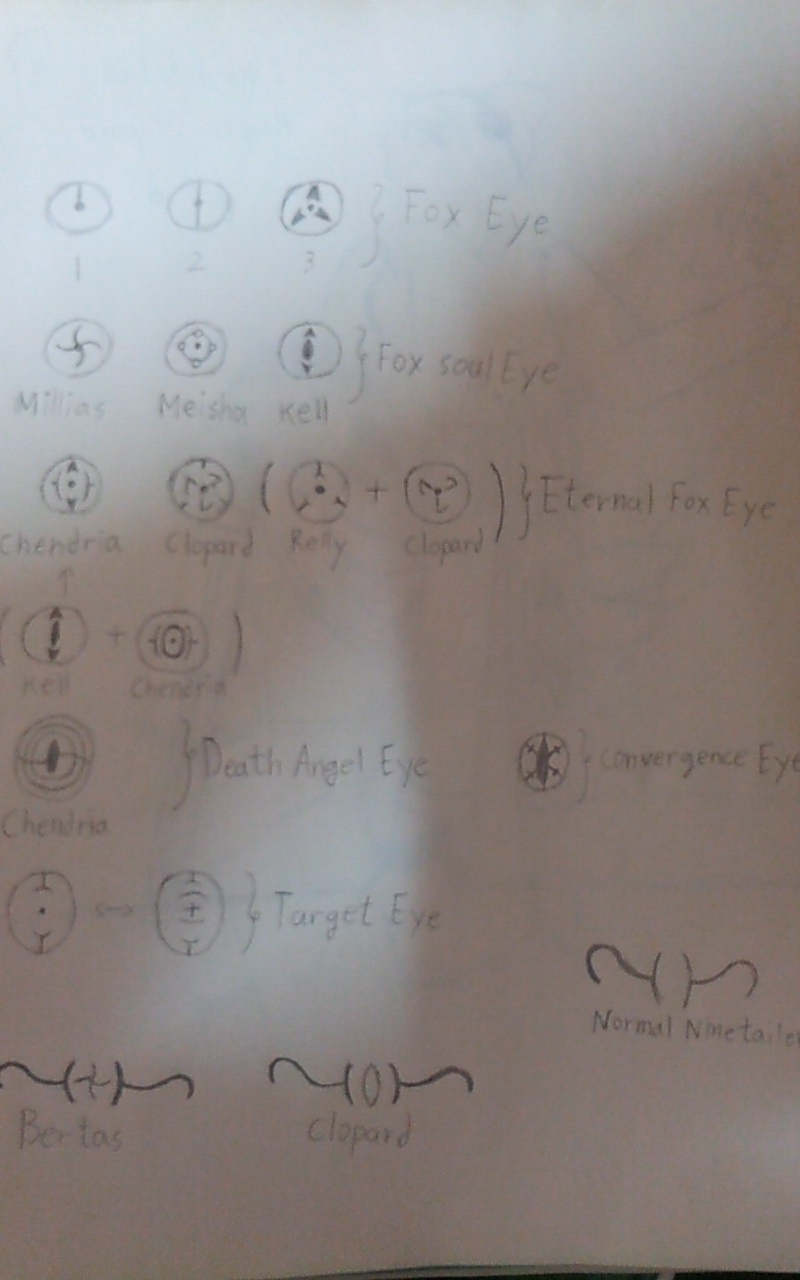 Fox Eye
1 2 3
Fox soul Eye
Millias Meisha Kell
( + ) Eternal Fox Eye
Chendria Clopard Relly Clopard
( + )
Kell Chendria
Death Angel Eye Convergence Eye
Chendria
Target Eye
Normal Ninetailer
Bertas Clopard